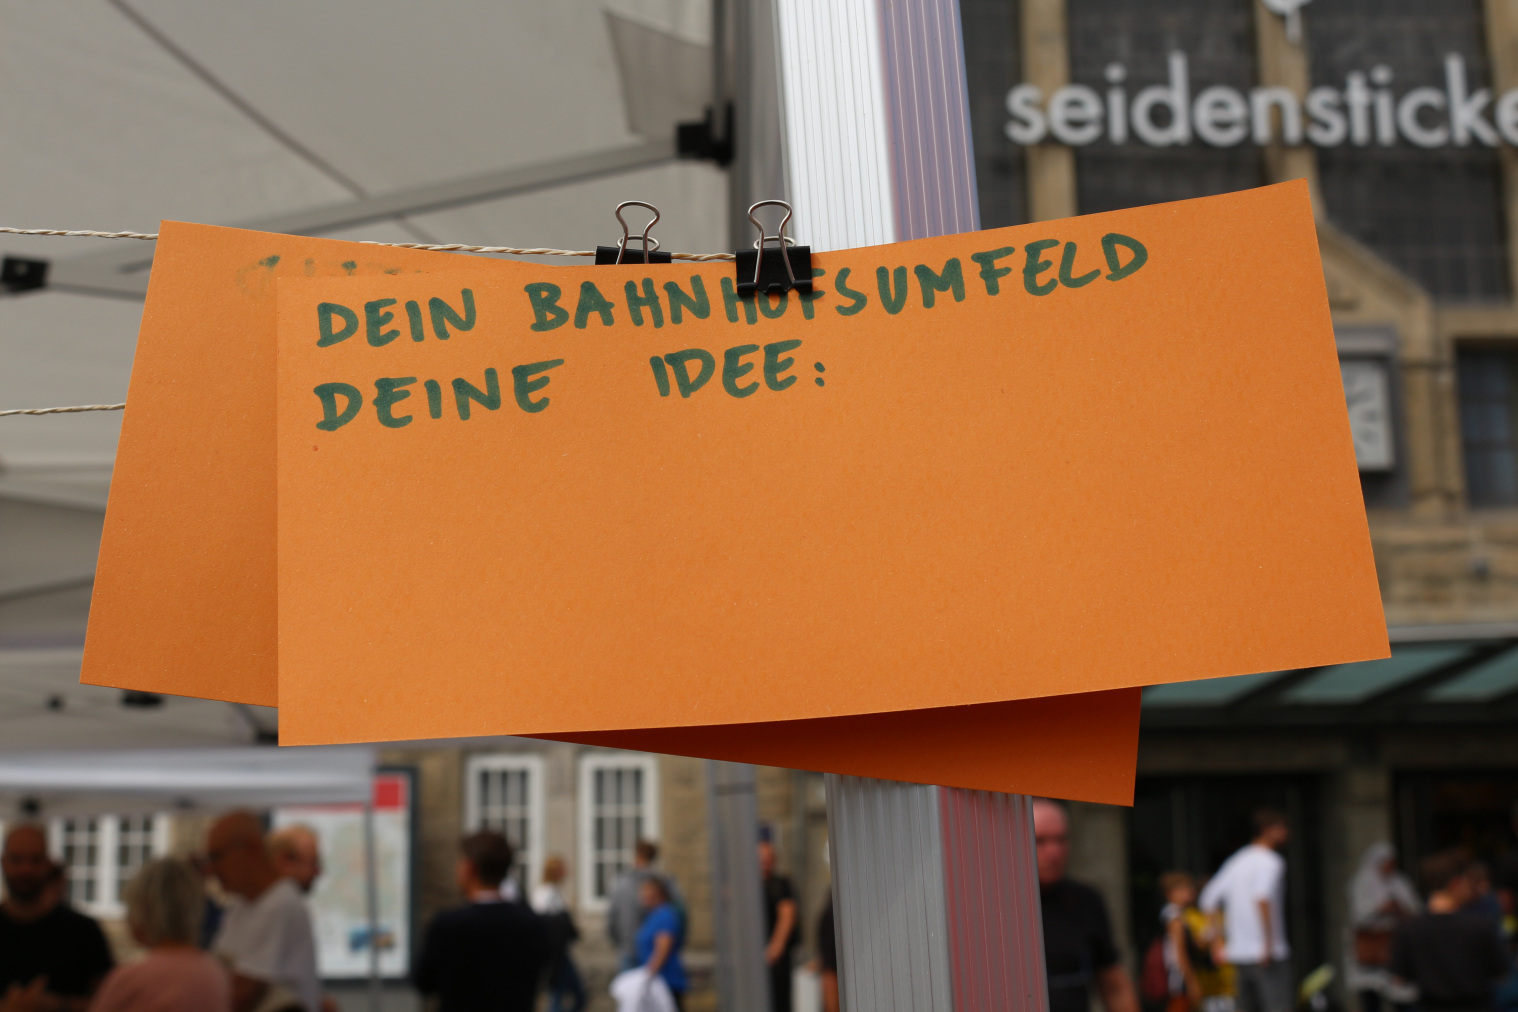 seidensticke
DEIN BAHNHOFSUMFELD
DEINE IDEE: